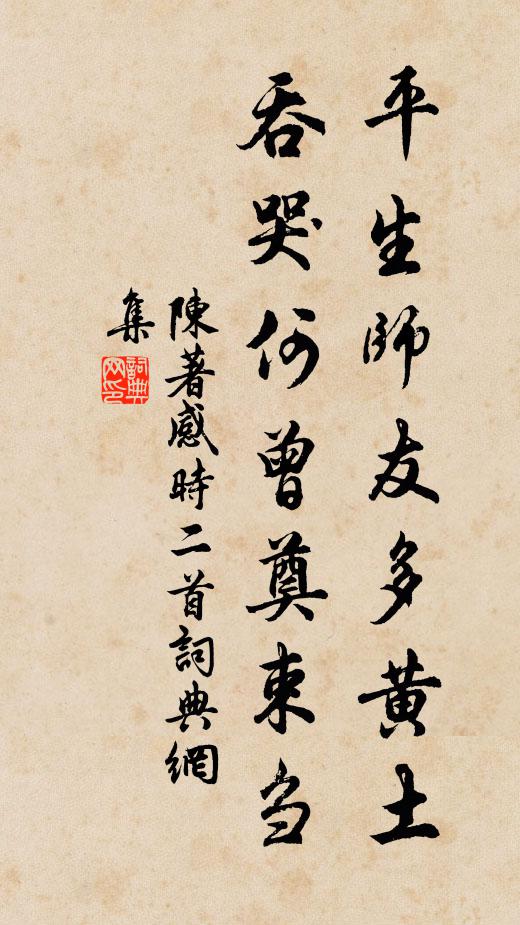 平生師友多黄土
吞哭何曾奠束刍
陳著感時二首詞典網
集
詞典
网印